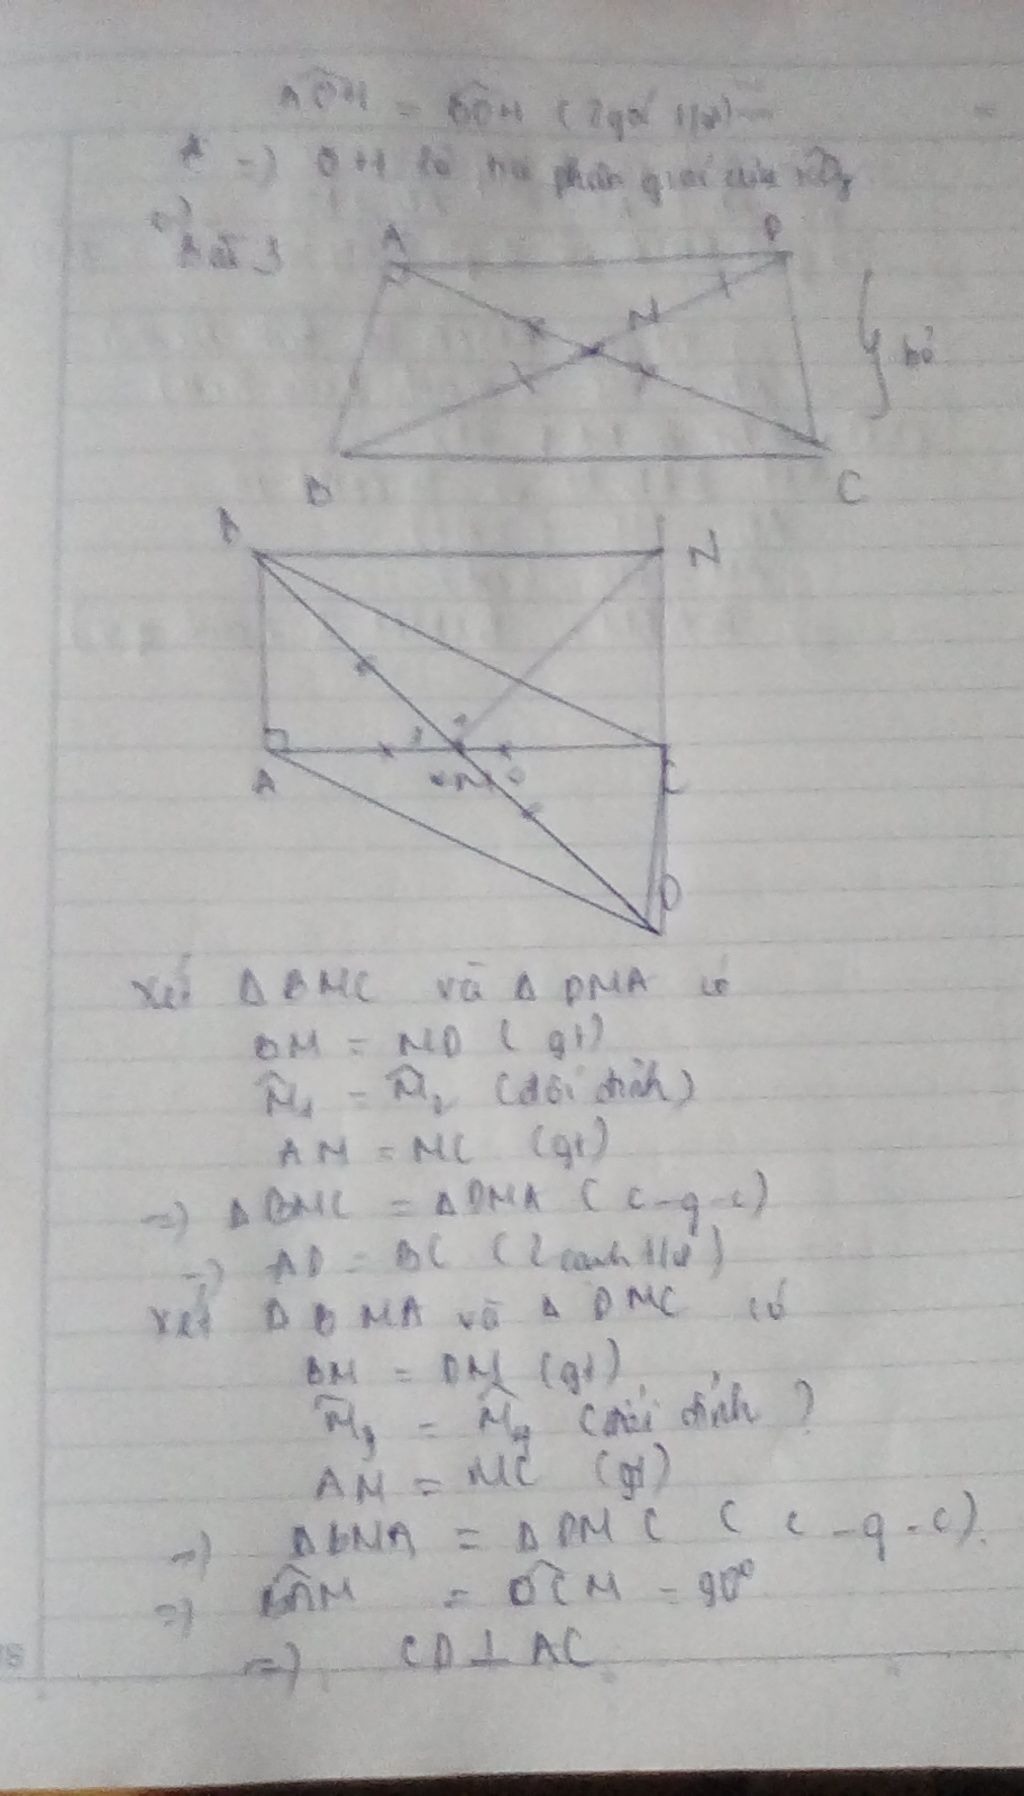 AOH = BOH (2 góc t/ư)
=) OH là tia phân giác của
Bài 3
A
D
N
bỏ
B
C
B
N
A
C
D
Xét Δ BMC và Δ DMA có
BM = MD (gt)
M̂1 = M̂2 (đối đỉnh)
AM = MC (gt)
=) Δ BMC = Δ DMA (c-g-c)
=) AD = BC (2 cạnh t/ư)
Xét Δ BMA và Δ DMC có
BM = DM (gt)
M̂3 = M̂4 (đối đỉnh)
AM = MC (gt)
=) Δ BMA = Δ DMC (c-g-c).
=) BAM = DCM = 90°
=) CD ⊥ AC